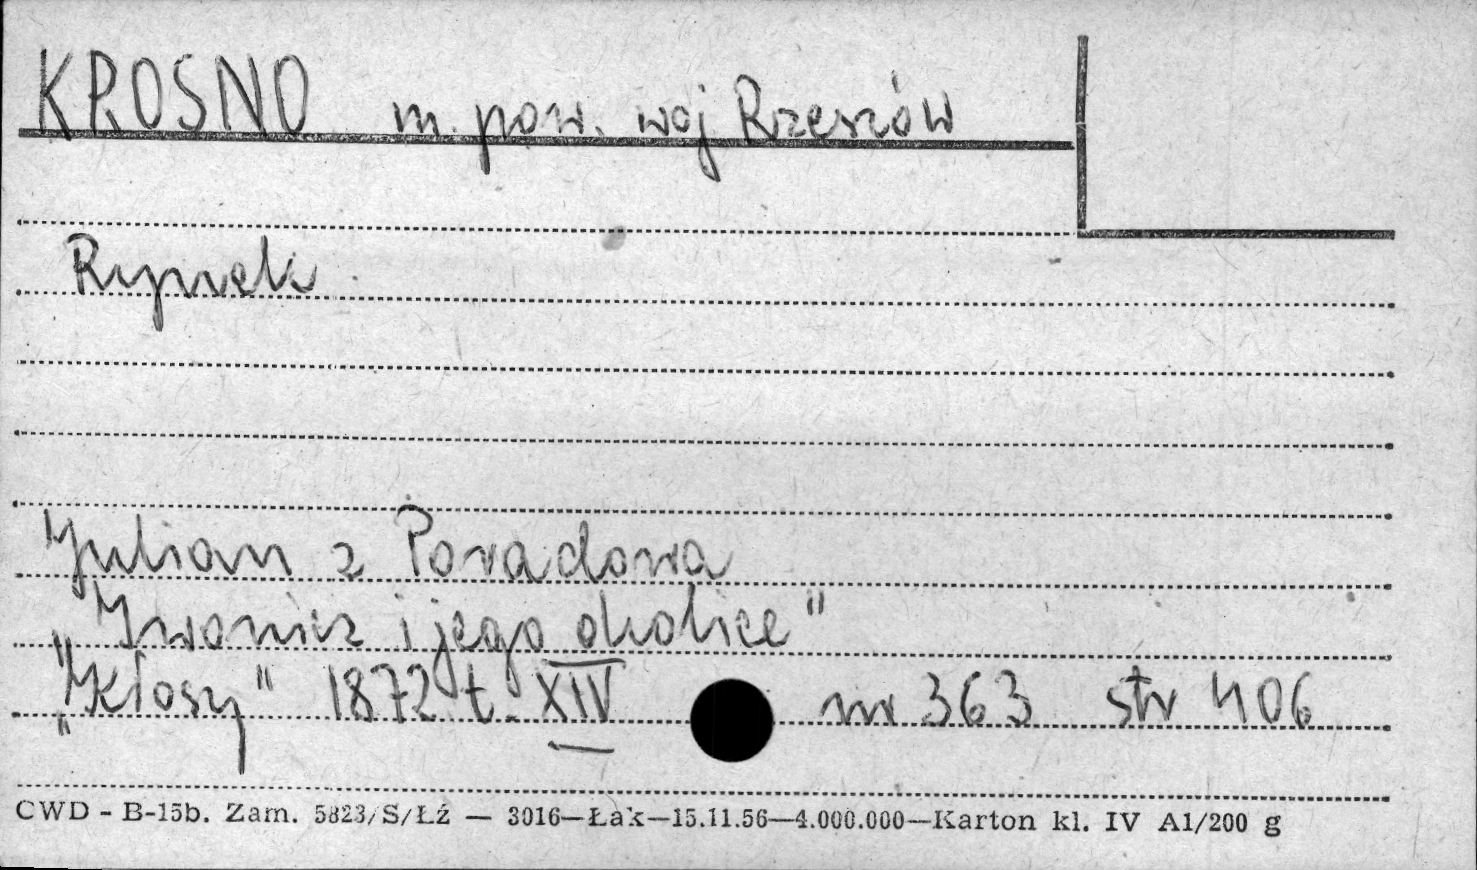 KROSNO m. pow. woj Rzeszów
Rynek
Julian z Poradowa
"Iwonicz i jego okolice"
„Kłosy" 1872 t. XIV nr 363 str 406
CWD - B-15b. Zam. 5823/S/Łź — 3016—Łàk—15.11.56—4.000.000—Karton kl. IV A1/200 g